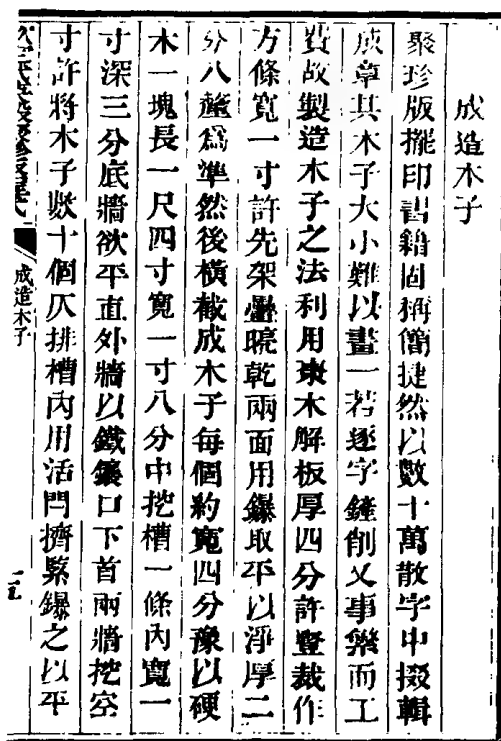 成造木子
聚珍版擺印書籍固稱簡捷然以數十萬散字中掇輯
成章其木子大小難以畫一若逐字鏟削又事繁而工
費故製造木子之法利用棗木解板厚四分許豎裁作
方條寬一寸許先架疊晾乾兩面用鑤取平以淨厚二
分八釐爲準然後橫截成木子每個約寬四分豫以硬
木一塊長一尺四寸寬一寸八分中挖槽一條內寬一
寸深三分底牆欲平直外牆以鐵鑲口下首兩牆挖空
寸許將木子數十個仄排槽內用活閂擠緊鑤之以平
成造木子